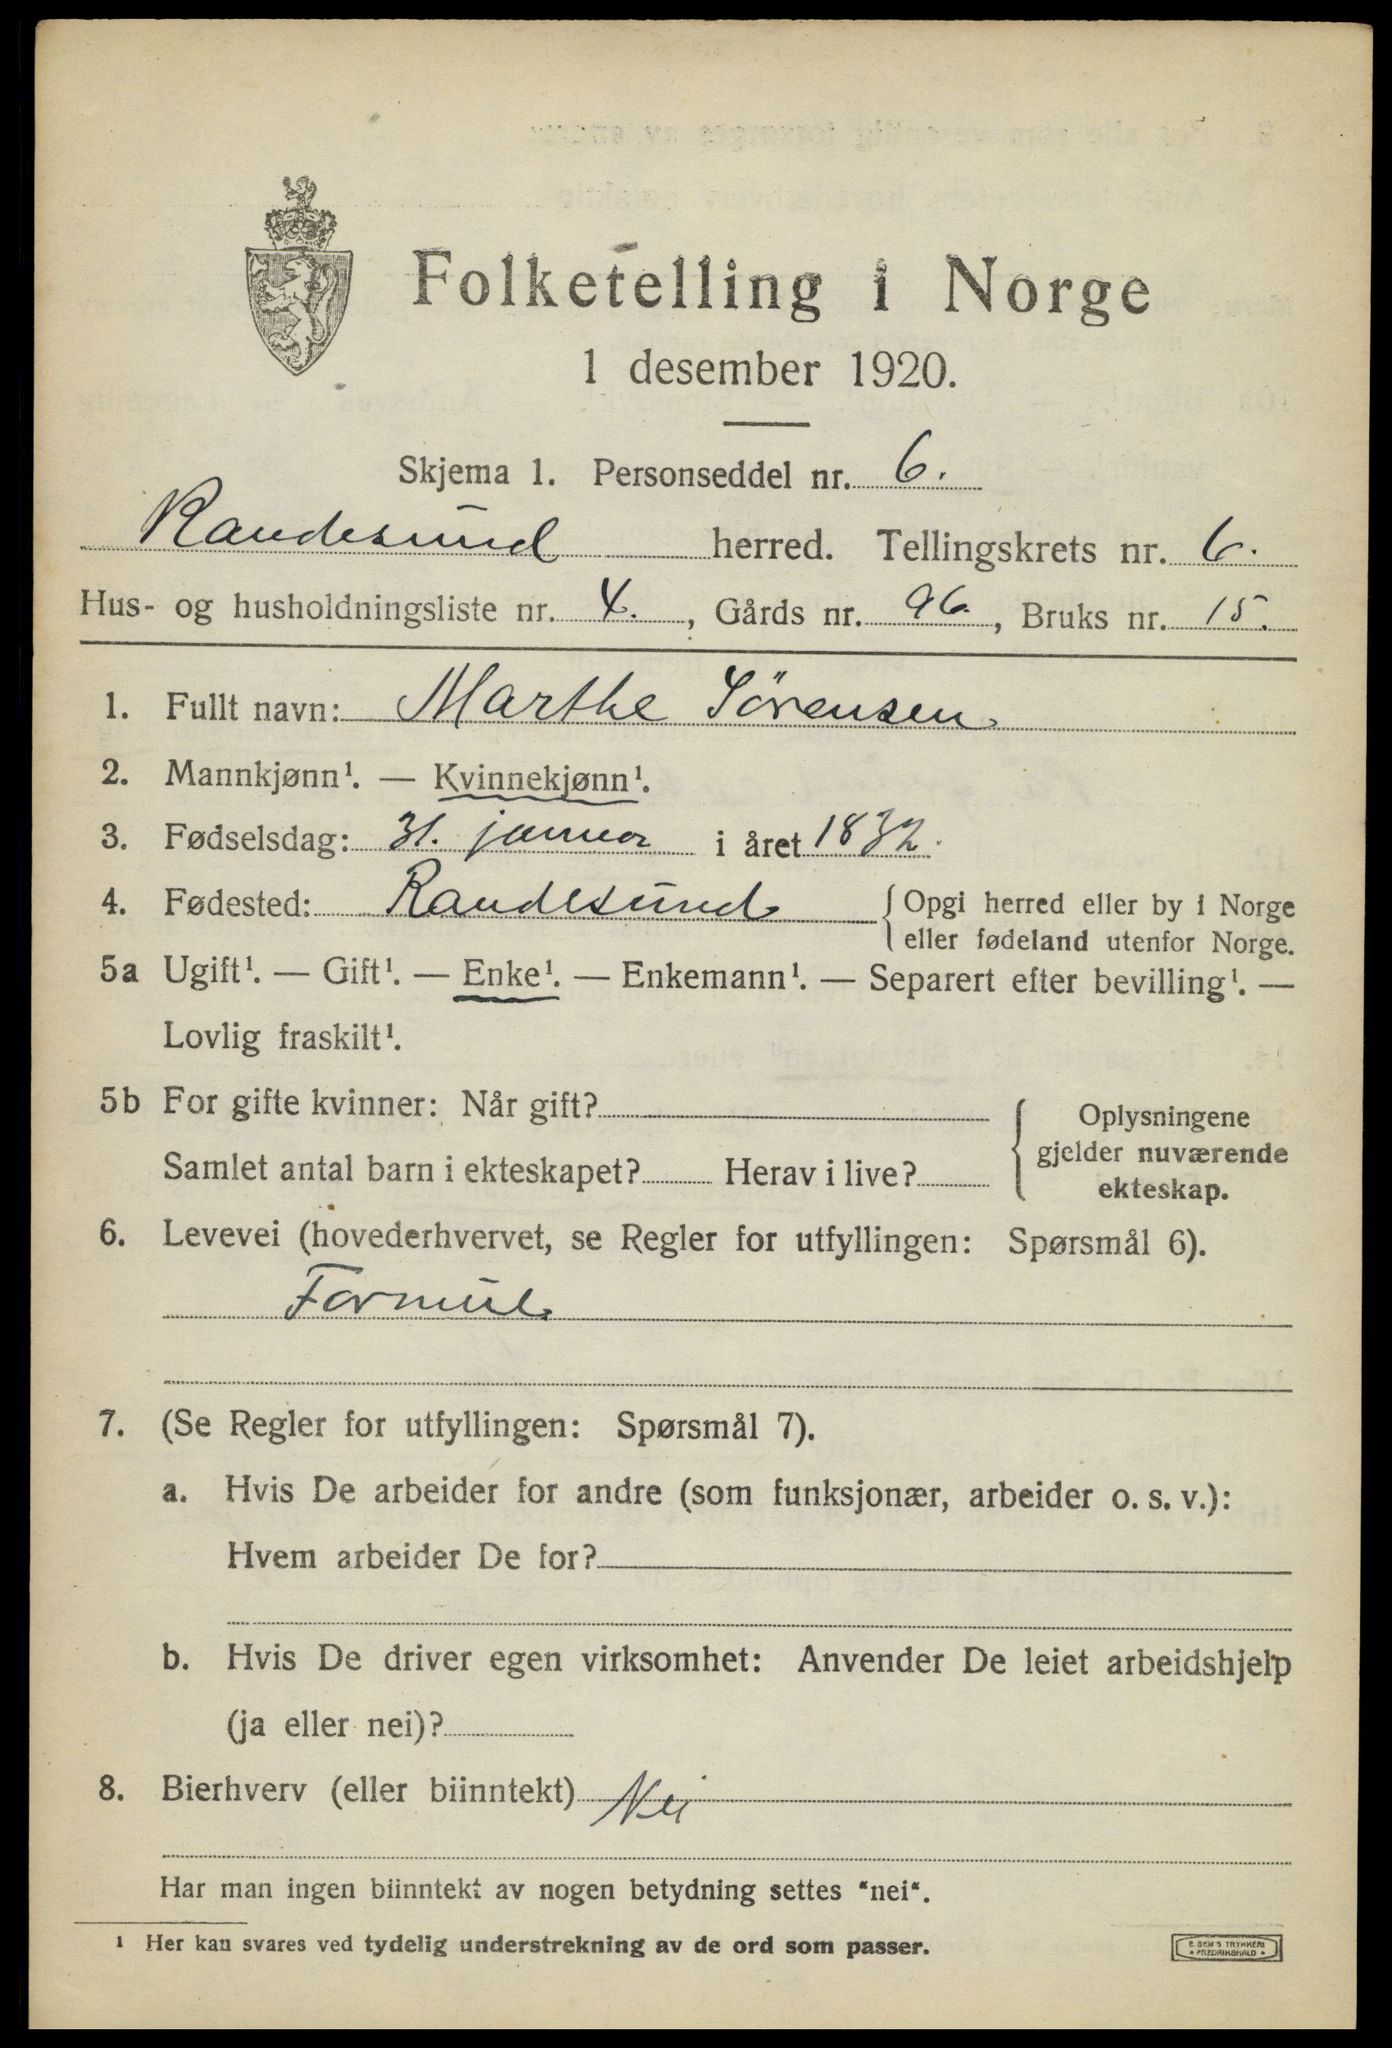 Folketelling i Norge
1 desember 1920.
Skjema 1. Personseddel nr. 6.
Randesund herred. Tellingskrets nr. 6.
Hus- og husholdningsliste nr. 4., Gårds nr. 96., Bruks nr. 15.
1. Fullt navn: Marthe Sörensen
2. Mannkjønn¹. — Kvinnekjønn¹.
3. Fødselsdag: 31. januar i året 1832.
4. Fødested: Randesund { Opgi herred eller by i Norge
eller fødeland utenfor Norge.
5a Ugift¹. — Gift¹. — Enke¹. — Enkemann¹. — Separert efter bevilling¹. —
Lovlig fraskilt¹.
5b For gifte kvinner: Når gift?
Samlet antal barn i ekteskapet? Herav i live?
{ Oplysningene
gjelder nuværende
ekteskap.
6. Levevei (hovederhvervet, se Regler for utfyllingen: Spørsmål 6).
Formue
7. (Se Regler for utfyllingen: Spørsmål 7).
a. Hvis De arbeider for andre (som funksjonær, arbeider o. s. v.):
Hvem arbeider De for?
b. Hvis De driver egen virksomhet: Anvender De leiet arbeidshjelp
(ja eller nei)?
8. Bierhverv (eller biinntekt) Nei
Har man ingen biinntekt av nogen betydning settes “nei“.
¹ Her kan svares ved tydelig understrekning av de ord som passer.
E. SEM'S TRYKKERI
• FREDRIKSHALD •